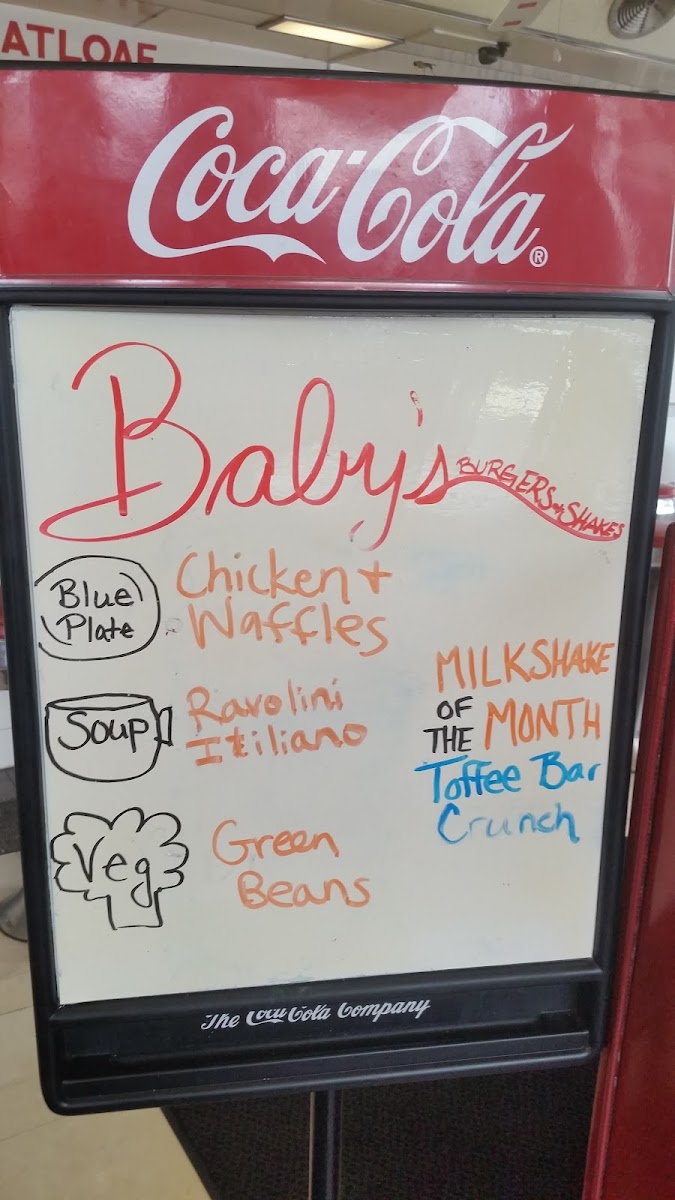 ATLOAF
Coca-Cola®
Baby's
BURGERS & SHAKES
Blue
Plate
Chicken +
Waffles
Soup
Ravolini
Itiliano
Veg
Green
Beans
MILKSHAKE
OF
THE MONTH
Toffee Bar
Crunch
The Coca-Cola Company